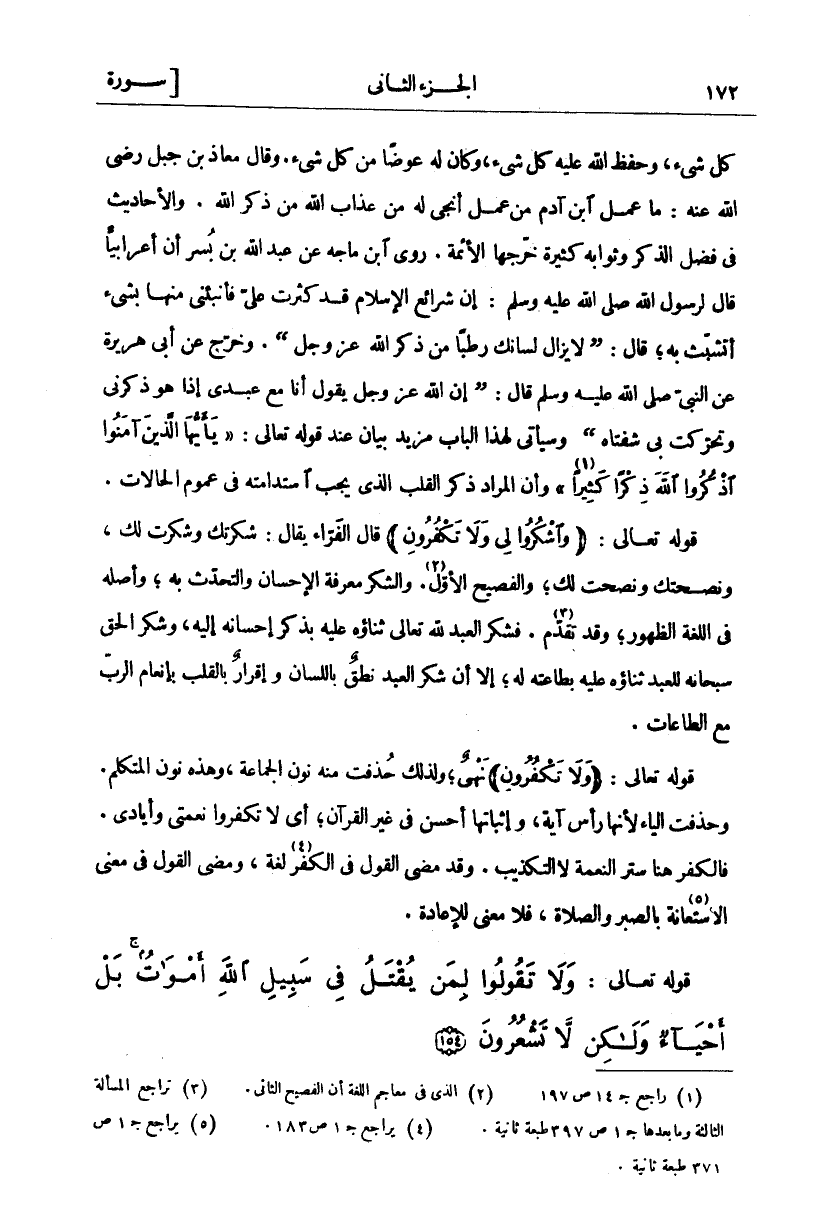 ١٧٢ الجـزء الثانى [ ســورة
كل شىء، وحفظ الله عليه كل شىء،وكان له عوضًا من كل شىء. وقال معاذ بن جبل رضى
الله عنه : ما عمـل ٱبن آدم من عمـل أنجى له من عذاب الله من ذكر الله . والأحاديث
فى فضل الذكر وثوابه كثيرة خرّجها الأئمة . روى ٱبن ماجه عن عبد الله بن بُسر أن أعرابيًّا
قال لرسول الله صلى الله عليه وسلم : إن شرائع الإسلام قـد كثرت علىّ فأنبئنى منهـا بشىء
أتشبّث به؛ قال : ” لا يزال لسانك رطبًا من ذكر الله عز وجل “ . وخرّج عن أبى هريرة
عن النبىّ صلى الله عليـه وسلم قال : ” إن الله عز وجل يقول أنا مع عبـدى إذا هو ذكرنى
وتحرّكت بى شفتاه “ وسيأتى لهذا الباب مزيد بيان عند قوله تعالى : « يَـٰأَيُّهَا الَّذِينَ آمَنُوا
ٱذْكُرُوا ٱللَّهَ ذِكْرًا كَثِيرًا (١) » وأن المراد ذكر القلب الذى يجب ٱستدامته فى عموم الحالات .
قوله تعـالى : ﴿ وَٱشْكُرُوا لِى وَلَا تَكْفُرُونِ ﴾ قال الفَرّاء يقال : شكرتك وشكرت لك ،
ونصـحتك ونصحت لك؛ والفصيح الأوّل (٢). والشكر معرفة الإحسان والتحدّث به ؛ وأصله
فى اللغة الظهور؛ وقد تقدّم (٣) . فشكر العبد لله تعالى ثناؤه عليه بذكر إحسانه إليه، وشكر الحق
سبحانه للعبد ثناؤه عليه بطاعته له؛ إلا أن شكر العبد نطقٌ باللسان و إقرارٌ بالقلب بإنعام الربّ
مع الطاعات .
قوله تعالى : ﴿وَلَا تَكْفُرُونِ﴾ نَهْىٌ؛ولذلك حُذفت منه نون الجماعة ،وهذه نون المتكلم.
وحذفت الياء لأنها رأس آية، و إثباتها أحسن فى غير القرآن؛ أى لا تكفروا نعمتى وأيادى .
فالكفر هنا ستر النعمة لا التكذيب . وقد مضى القول فى الكفر (٤) لغة ، ومضى القول فى معنى
الاستعانة (٥) بالصبر والصلاة ، فلا معنى للإعادة .
قوله تعـالى : وَلَا تَقُولُوا لِمَن يُقْتَـلُ فِى سَبِيلِ ٱللَّهِ أَمْوَٰتٌۢ ۚ بَلْ
أَحْيَـآءٌ وَلَـٰكِن لَّا تَشْعُرُونَ ١٥٤
(١) راجع جـ ١٤ ص ١٩٧ (٢) الذى فى معاجم اللغة أن الفصيح الثانى. (٣) تراجع المسألة
الثالثة وما بعدها جـ ١ ص ٣٩٧ طبعة ثانية . (٤) يراجع جـ ١ ص ١٨٣ . (٥) يراجع جـ ١ ص
٣٧١ طبعة ثانية .